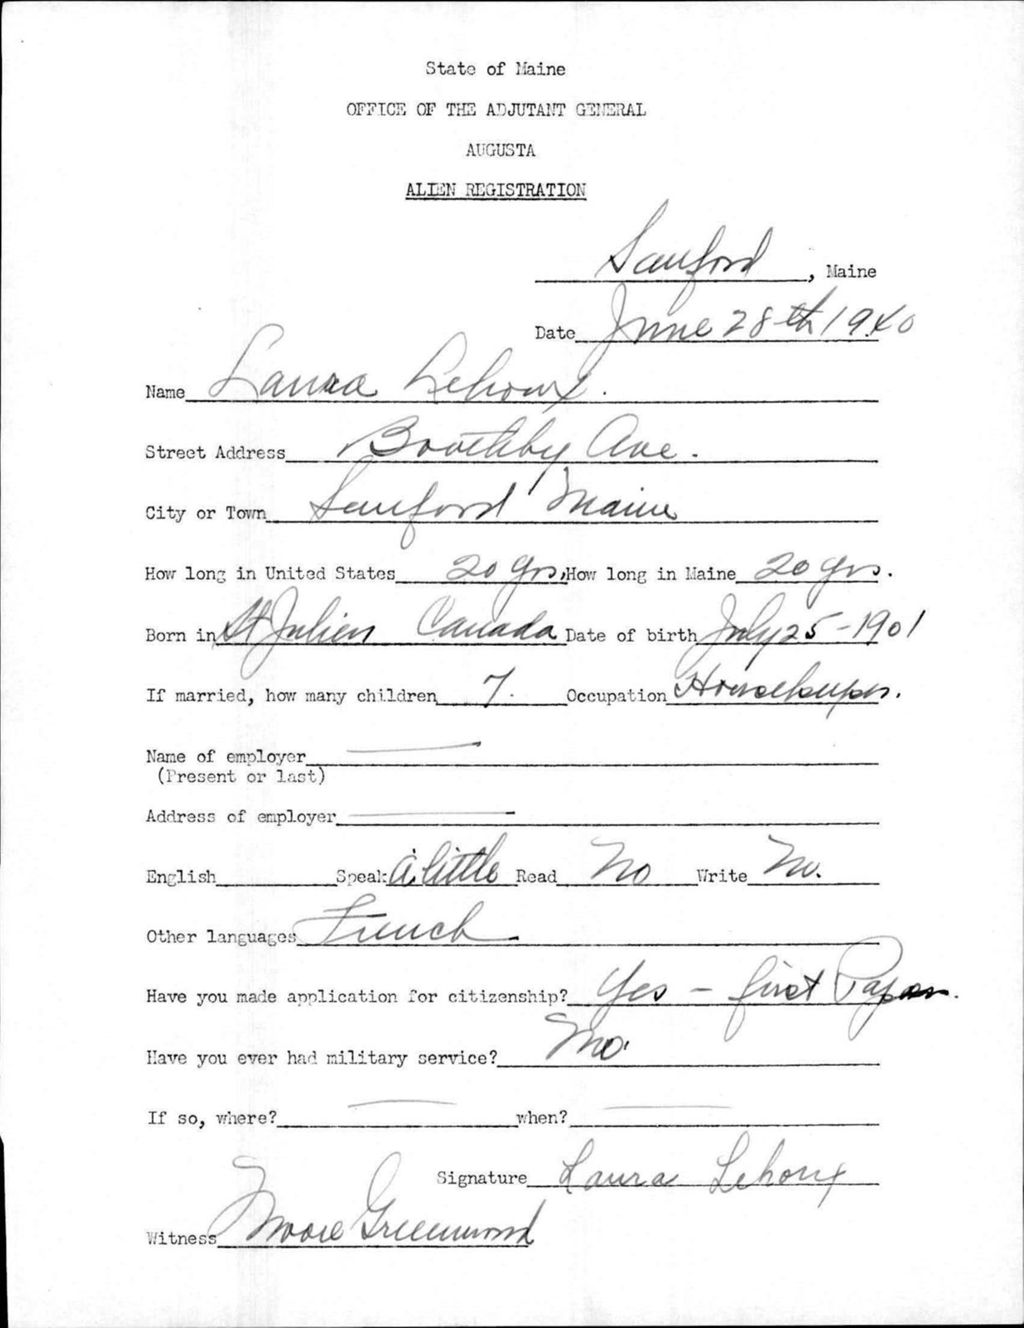 State of Maine
OFFICE OF THE ADJUTANT GENERAL
AUGUSTA
ALIEN REGISTRATION
Sanford, Maine
Date June 28th 1940
Name Laura Lehoux.
Street Address Boothby Ave.
City or Town Sanford Maine
How long in United States 20 yrs, How long in Maine 20 yrs.
Born in St Julien Canada Date of birth July 25-1901
If married, how many children 7. Occupation Housekeeper.
Name of employer
(Present or last)
Address of employer
English Speak a little Read No Write No.
Other languages French
Have you made application for citizenship? Yes - first Papers.
Have you ever had military service? No.
If so, where? when?
Signature Laura Lehoux
Witness Greenwood